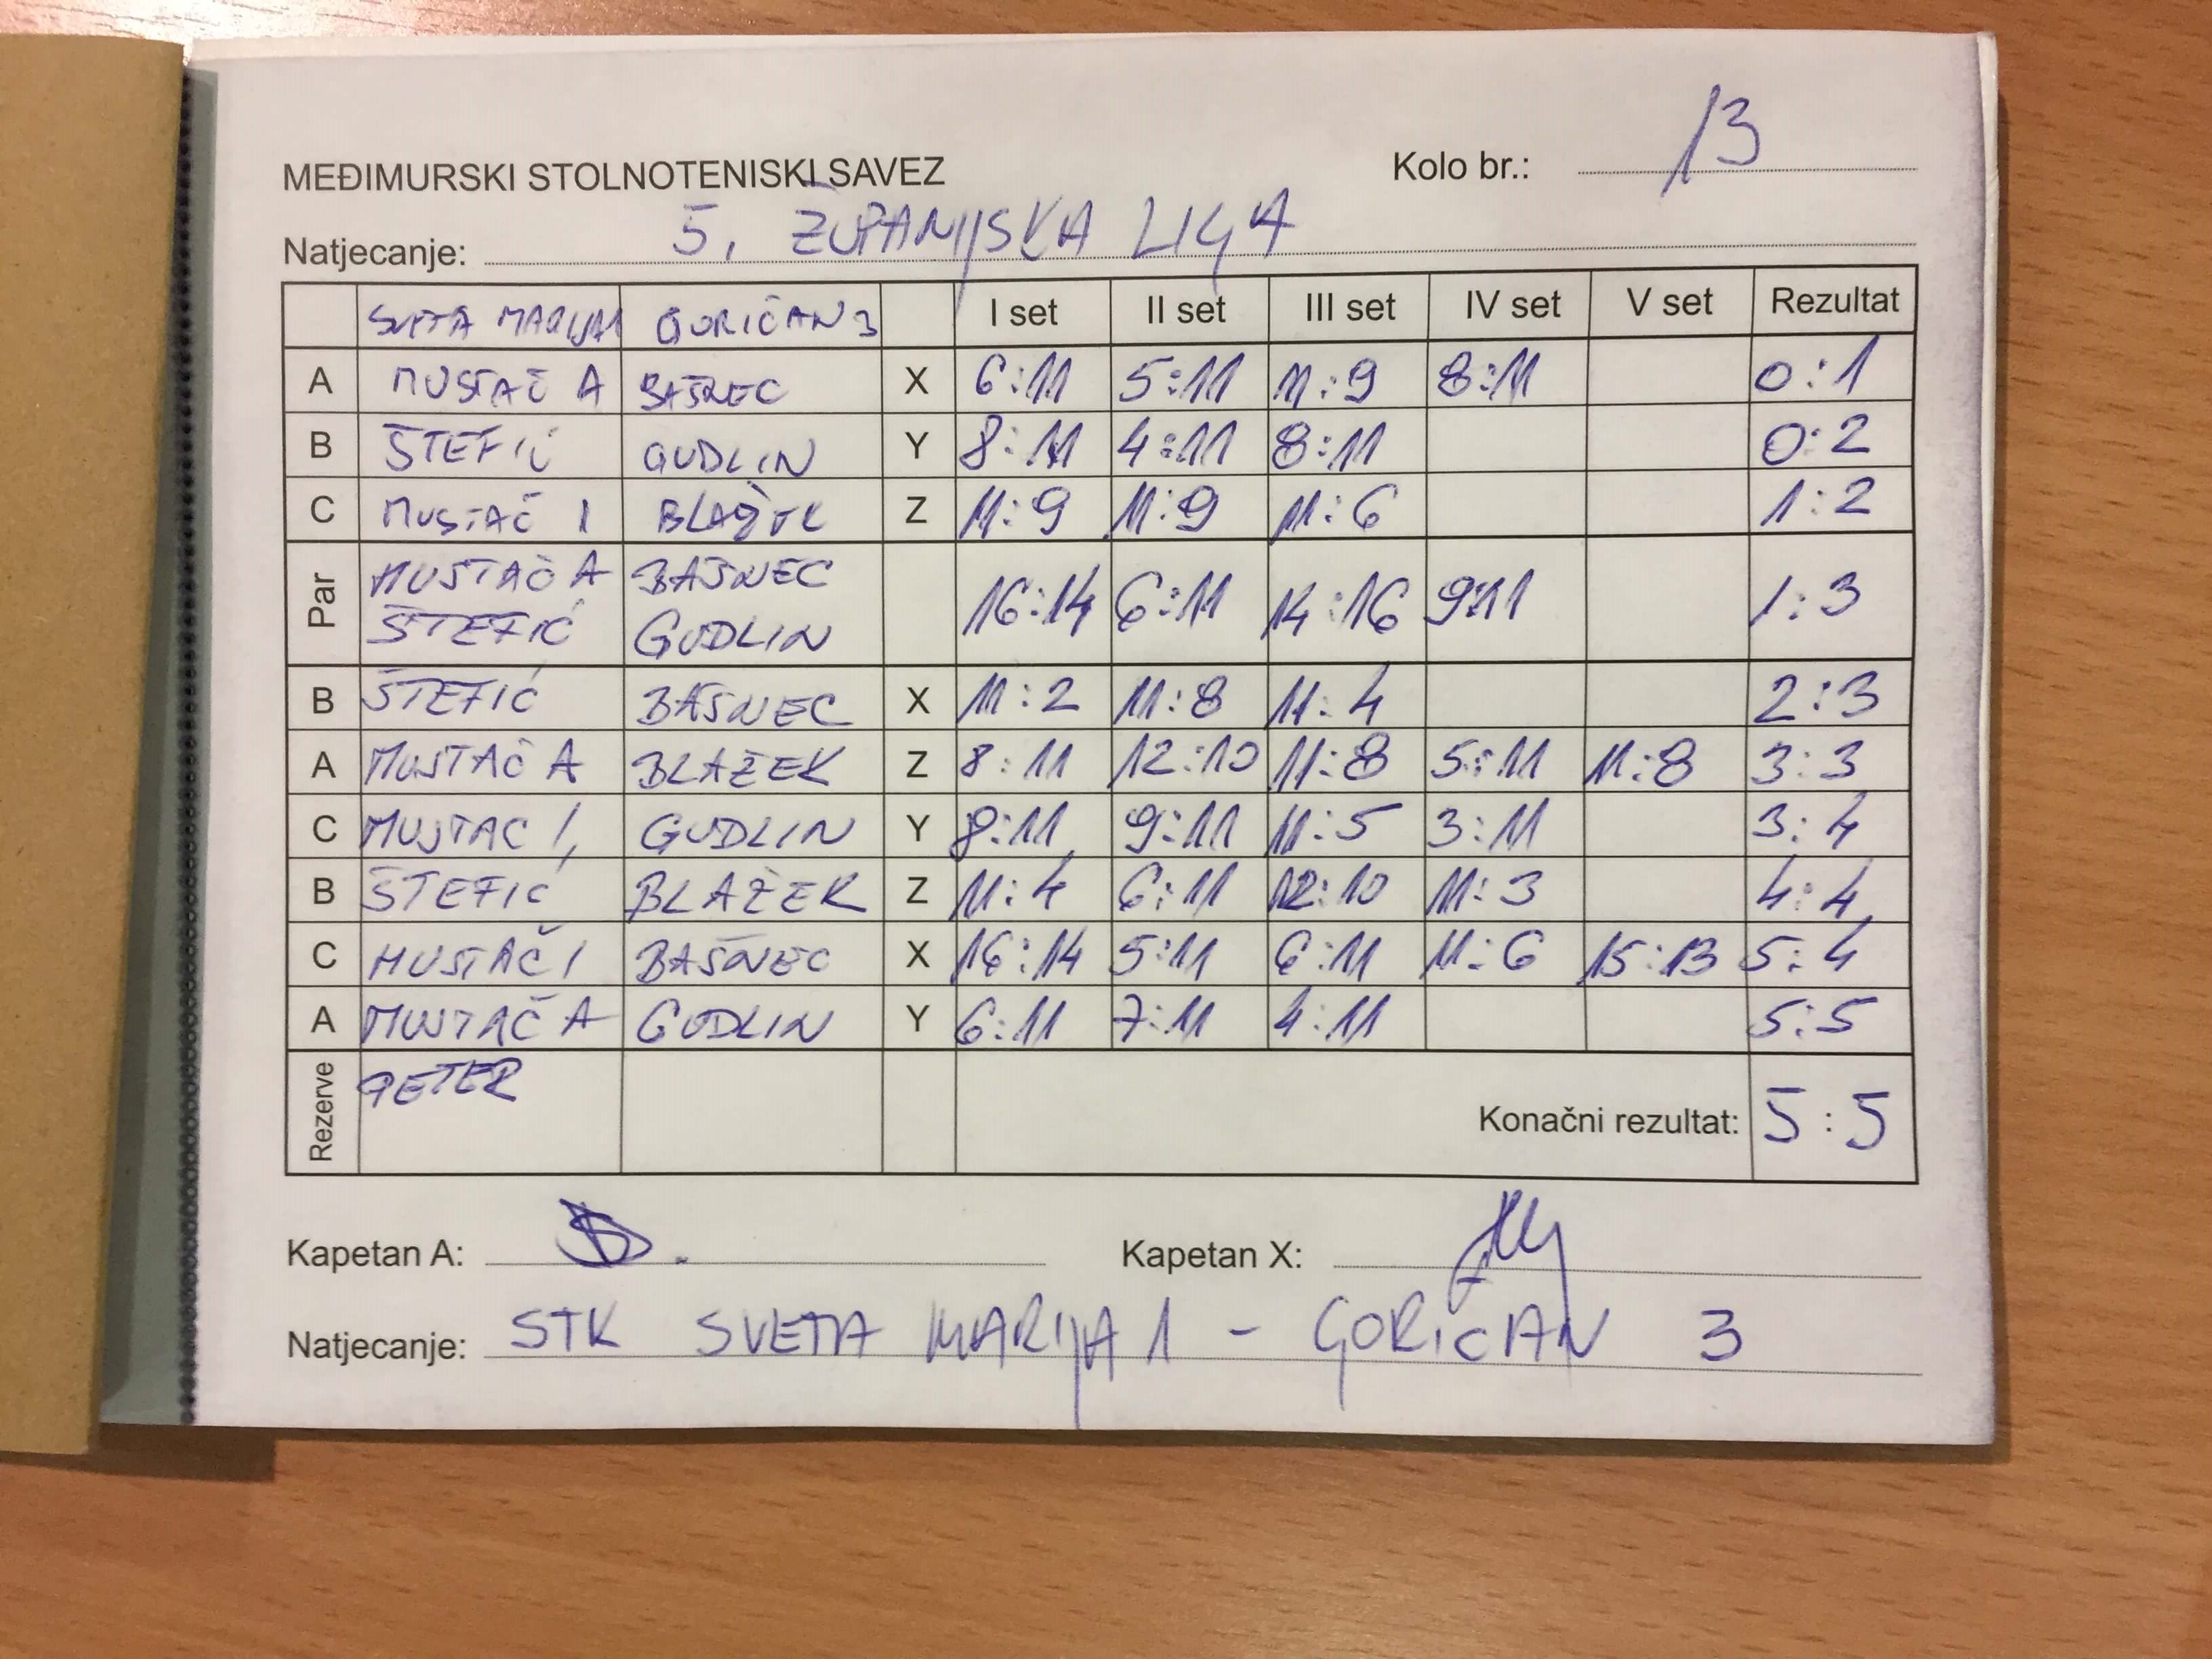 MEĐIMURSKI STOLNOTENISKI SAVEZ Kolo br.: 13
Natjecanje: 5. ŽUPANIJSKA LIGA
SVETA MARIJA 1 GORIČAN 3 I set II set III set IV set V set Rezultat
A MUSTAČ A BAŠNEC X 6:11 5:11 11:9 8:11 0:1
B ŠTEFIĆ GUDLIN Y 8:11 4:11 8:11 0:2
C MUSTAČ I BLAŽEK Z 11:9 11:9 11:6 1:2
Par MUSTAČ A BAŠNEC 16:14 6:11 14:16 9:11 1:3
ŠTEFIĆ GUDLIN
B ŠTEFIĆ BAŠNEC X 11:2 11:8 11:4 2:3
A MUSTAČ A BLAŽEK Z 8:11 12:10 11:8 5:11 11:8 3:3
C MUSTAC I, GUDLIN Y 8:11 9:11 11:5 3:11 3:4
B ŠTEFIĆ BLAŽEK Z 11:4 6:11 12:10 11:3 4:4
C MUSTAČ I BAŠNEC X 16:14 5:11 6:11 11:6 15:13 5:4
A MUSTAČ A GUDLIN Y 6:11 7:11 4:11 5:5
Rezerve PETER Konačni rezultat: 5:5
Kapetan A: Kapetan X:
Natjecanje: STK SVETA MARIJA 1 - GORIČAN 3